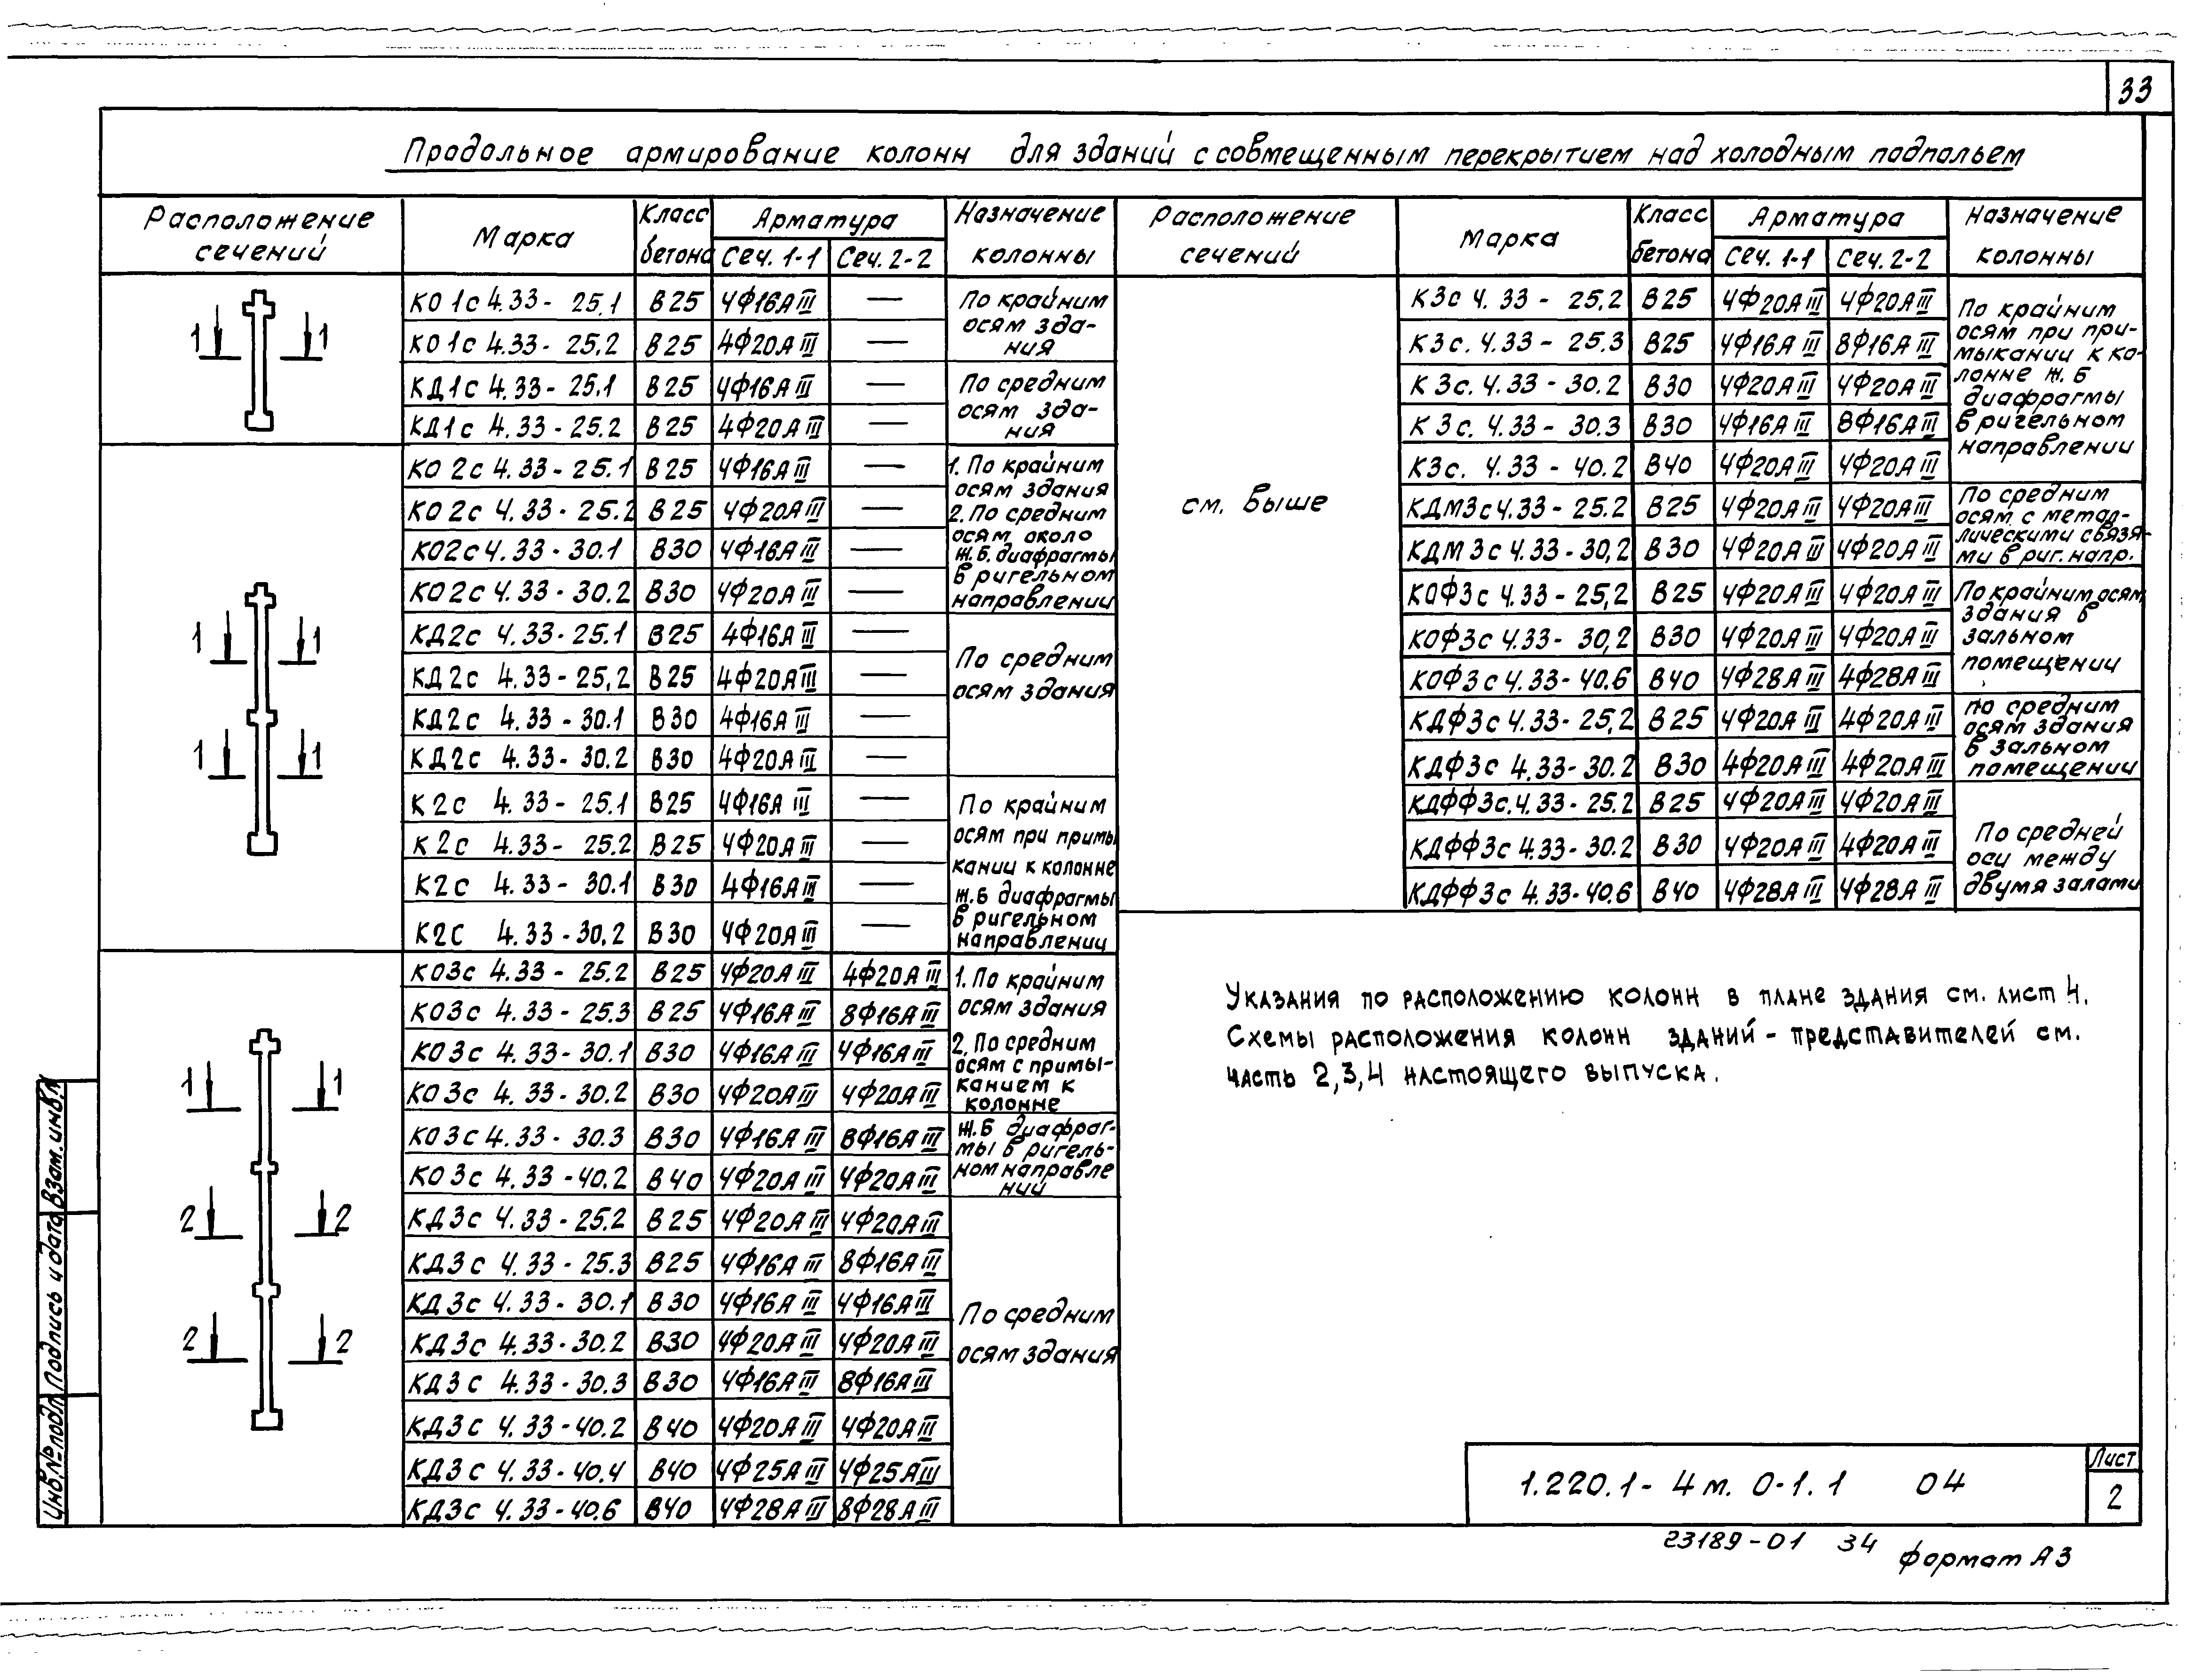 33
Продольное армирование колонн для зданий с совмещенным перекрытием над холодным подпольем
Расположение сечений Марка Класс бетона Арматура Сеч. 1-1 Сеч. 2-2 Назначение колонны
1 1
КО 1с 4.33 - 25.1 В25 4Ф16АIII —
КО 1с 4.33 - 25.2 В25 4Ф20АIII —
По крайним
осям зда-
ния
КД1с 4.33 - 25.1 В25 4Ф16АIII —
КД1с 4.33 - 25.2 В25 4Ф20АIII —
По средним
осям зда-
ния
1 1
1 1
КО 2с 4.33 - 25.1 В25 4Ф16АIII —
КО 2с 4.33 - 25.2 В25 4Ф20АIII —
КО2с 4.33 - 30.1 В30 4Ф16АIII —
КО2с 4.33 - 30.2 В30 4Ф20АIII —
1. По крайним
осям здания
2. По средним
осям около
ж.б. диафрагмы
в ригельном
направлении
КД2с 4.33 - 25.1 В25 4Ф16АIII —
КД2с 4.33 - 25,2 В25 4Ф20АIII —
КД2с 4.33 - 30.1 В30 4Ф16АIII —
КД2с 4.33 - 30.2 В30 4Ф20АIII —
По средним
осям здания
К2с 4.33 - 25.1 В25 4Ф16АIII —
К2с 4.33 - 25.2 В25 4Ф20АIII —
К2с 4.33 - 30.1 В30 4Ф16АIII —
К2С 4.33 - 30.2 В30 4Ф20АIII —
По крайним
осям при примы
кании к колонне
ж.б диафрагмы
в ригельном
направлении
1 1
2 2
2 2
КО3с 4.33 - 25.2 В25 4Ф20АIII 4Ф20АIII
КО3с 4.33 - 25.3 В25 4Ф16АIII 8Ф16АIII
КО3с 4.33 - 30.1 В30 4Ф16АIII 4Ф16АIII
КО3с 4.33 - 30.2 В30 4Ф20АIII 4Ф20АIII
КО3с 4.33 - 30.3 В30 4Ф16АIII 8Ф16АIII
КО3с 4.33 - 40.2 В40 4Ф20АIII 4Ф20АIII
1. По крайним
осям здания
2. По средним
осям с примы-
канием к
колонне
ж.б диафраг-
мы в ригель-
ном направле
нии
КД3с 4.33 - 25.2 В25 4Ф20АIII 4Ф20АIII
КД3с 4.33 - 25.3 В25 4Ф16АIII 8Ф16АIII
КД3с 4.33 - 30.1 В30 4Ф16АIII 4Ф16АIII
КД3с 4.33 - 30.2 В30 4Ф20АIII 4Ф20АIII
КД3с 4.33 - 30.3 В30 4Ф16АIII 8Ф16АIII
КД3с 4.33 - 40.2 В40 4Ф20АIII 4Ф20АIII
КД3с 4.33 - 40.4 В40 4Ф25АIII 4Ф25АIII
КД3с 4.33 - 40.6 В40 4Ф28АIII 8Ф28АIII
По средним
осям здания
Расположение сечений Марка Класс бетона Арматура Сеч. 1-1 Сеч. 2-2 Назначение колонны
см. выше
К3с 4.33 - 25,2 В25 4Ф20АIII 4Ф20АIII
К3с. 4.33 - 25.3 В25 4Ф16АIII 8Ф16АIII
К3с. 4.33 - 30.2 В30 4Ф20АIII 4Ф20АIII
К3с. 4.33 - 30.3 В30 4Ф16АIII 8Ф16АIII
К3с. 4.33 - 40.2 В40 4Ф20АIII 4Ф20АIII
По крайним
осям при при-
мыкании к ко-
лонне ж.б
диафрагмы
в ригельном
направлении
КДМ3с 4.33 - 25.2 В25 4Ф20АIII 4Ф20АIII
КДМ3с 4.33 - 30,2 В30 4Ф20АIII 4Ф20АIII
По средним
осям с метал-
лическими связя-
ми в риг. напр.
КОФ3с 4.33 - 25,2 В25 4Ф20АIII 4Ф20АIII
КОФ3с 4.33 - 30,2 В30 4Ф20АIII 4Ф20АIII
КОФ3с 4.33 - 40.6 В40 4Ф28АIII 4Ф28АIII
По крайним осям
здания в
зальном
помещении
КДФ3с 4.33 - 25,2 В25 4Ф20АIII 4Ф20АIII
КДФ3с 4.33 - 30.2 В30 4Ф20АIII 4Ф20АIII
по средним
осям здания
в зальном
помещении
КДФФ3с. 4.33 - 25.2 В25 4Ф20АIII 4Ф20АIII
КДФФ3с 4.33 - 30.2 В30 4Ф20АIII 4Ф20АIII
КДФФ3с 4.33 - 40.6 В40 4Ф28АIII 4Ф28АIII
По средней
оси между
двумя залами
Указания по расположению колонн в плане здания см. лист 4.
Схемы расположения колонн зданий - представителей см.
часть 2,3,4 настоящего выпуска.
Взам. инв.№
Подпись и дата
Инв.№подл.
1.220.1 - 4м. 0-1.1 04
Лист
2
23189-01 34
Формат А3